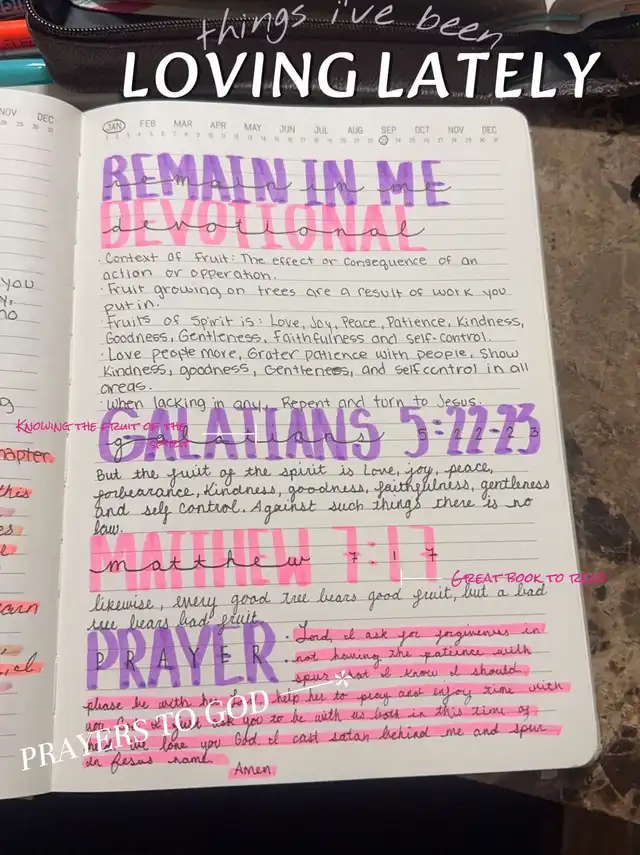 things i've been
LOVING LATELY
NOV DEC
JAN FEB MAR APR MAY JUN JUL AUG SEP OCT NOV DEC
REMAIN IN ME
remain in me
DEVOTIONAL
devotional
· Context of Fruit: The effect or consequence of an
action or opperation.
· Fruit growing on trees are a result of work you
put in.
· Fruits of Spirit is: Love, Joy, Peace, Patience, Kindness,
Goodness, Gentleness, Faithfulness and self-control.
· Love people more, Grater patience with people, Show
Kindness, goodness, Gentleness, and self control in all
areas.
· When lacking in any, Repent and turn to Jesus.
KNOWING THE FRUIT OF THE
SPIRIT
GALATIANS 5:22-23
galatians 5:22-23
But the fuit of the spirit is Love, joy, peace,
forbearance, Kindness, goodness, faithfulness, gentleness
and self control. Against such things there is no
law.
MATTHEW 7:17
matthew 7:17
GREAT BOOK TO READ
likewise, every good tree bears good fruit, but a bad
tree bears bad fruit.
PRAYER
PRAYER
· Lord, I ask for forgiveness in
not having the patience with
spur that I know I should,
please be with her help her to pray and enjoy time with
you God. I ask you to be with us both in this time of
need. we love you God. I cast satan behind me and spur
in Jesus name
Amen
PRAYERS TO GOD
you
chapter.
this
es
e
earn